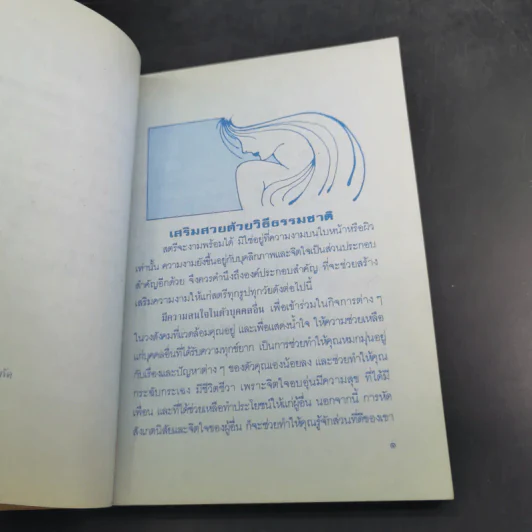 เสริมสวยด้วยวิธีธรรมชาติ
สตรีจะงามพร้อมได้ มิใช่อยู่ที่ความงามบนใบหน้าหรือผิว
เท่านั้น ความงามยังขึ้นอยู่กับบุคลิกภาพและจิตใจเป็นส่วนประกอบ
สำคัญอีกด้วย จึงควรคำนึงถึงองค์ประกอบสำคัญ ที่จะช่วยสร้าง
เสริมความงามให้แก่สตรีทุกรูปทุกวัยดังต่อไปนี้
มีความสนใจในตัวบุคคลอื่น เพื่อเข้าร่วมในกิจการต่าง ๆ
ในวงสังคมที่แวดล้อมคุณอยู่ และเพื่อแสดงน้ำใจ ให้ความช่วยเหลือ
แก่บุคคลอื่นที่ได้รับความทุกข์ยาก เป็นการช่วยทำให้คุณหมกมุ่นอยู่
กับเรื่องและปัญหาต่าง ๆ ของตัวคุณเองน้อยลง และช่วยทำให้คุณ
กระฉับกระเฉง มีชีวิตชีวา เพราะจิตใจอบอุ่นมีความสุข ที่ได้มี
เพื่อน และที่ได้ช่วยเหลือทำประโยชน์ให้แก่ผู้อื่น นอกจากนี้ การหัด
สังเกตนิสัยและจิตใจของผู้อื่น ก็จะช่วยทำให้คุณรู้จักส่วนที่ดีของเขา
๑